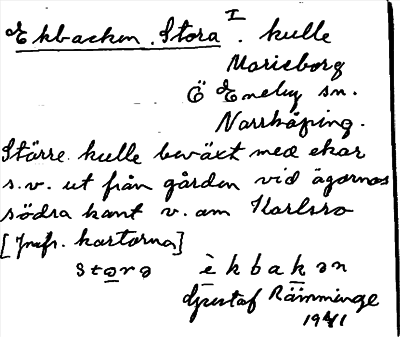 Ekbacken, Stora I. kulle
Marieborg
Ö Eneby sn.
Norrköping.
Större kulle beväxt med ekar
s.v. ut från gården vid ägornas
södra kant v. om Karlsro
[Jmfr. kartorna]
stora èkbakən
Gustaf Ränminge
1941